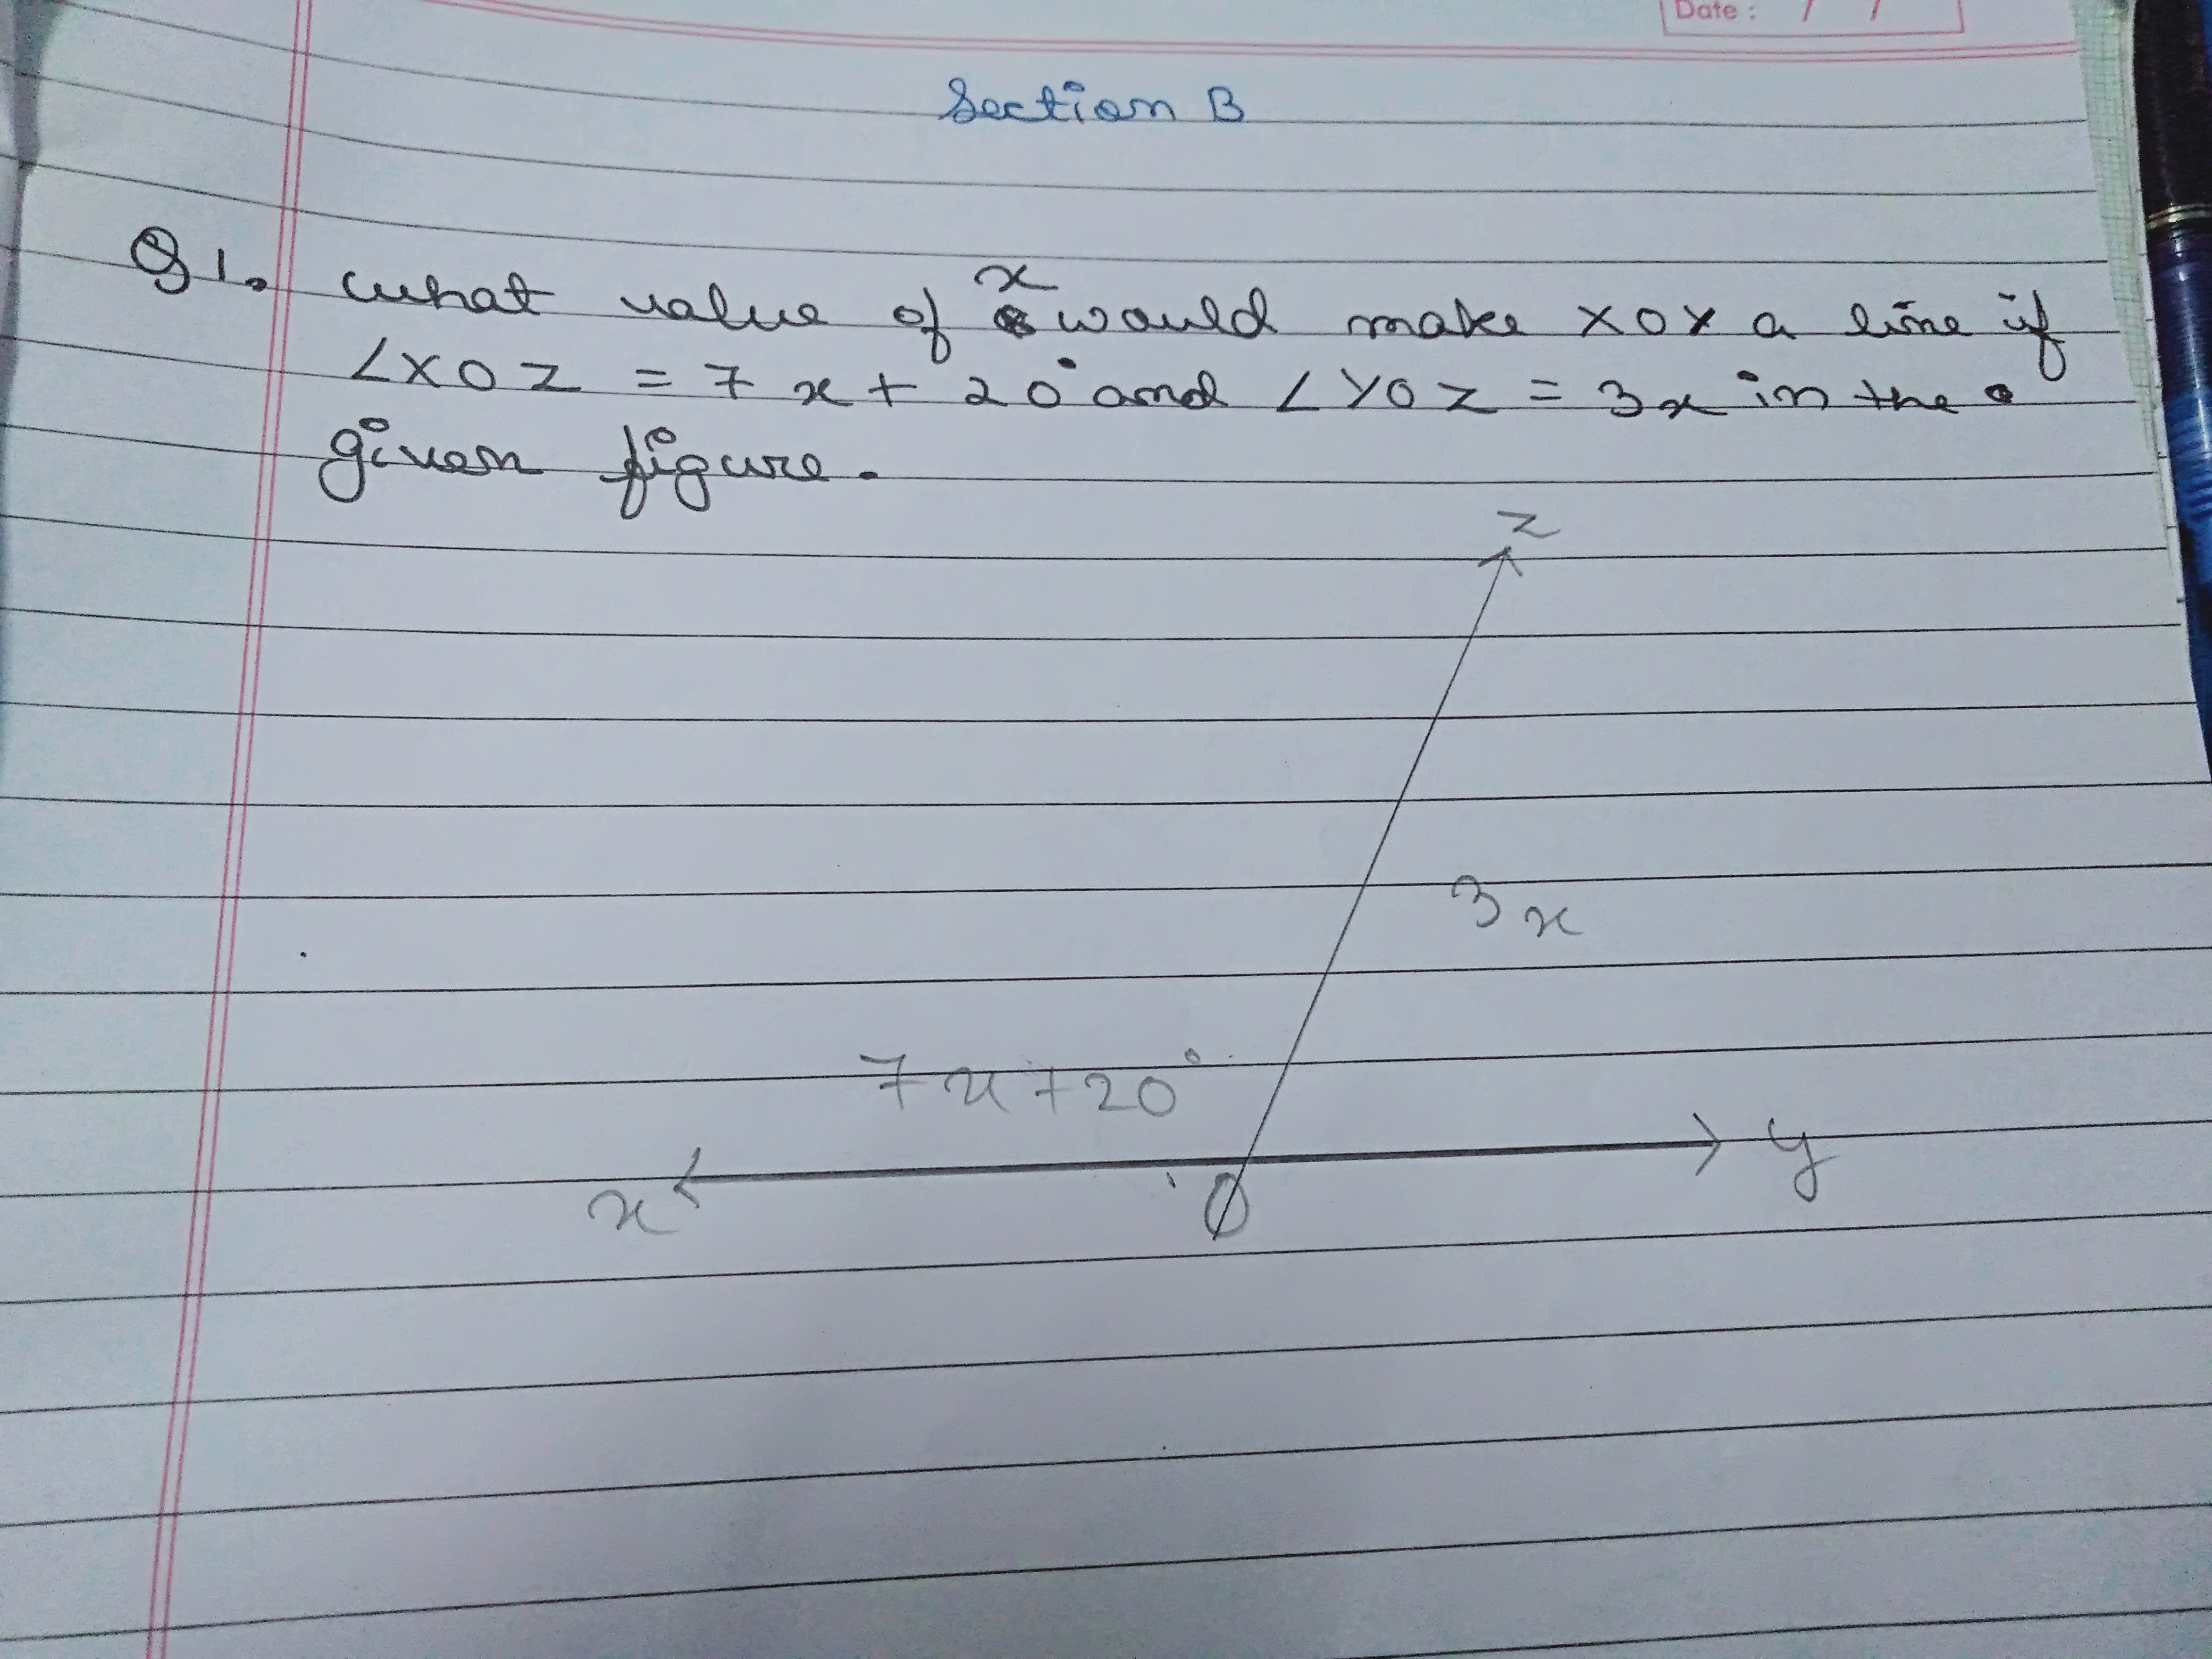 Date : / /
Section B
Q1. What value of x would make XOY a line if
∠XOZ = 7x + 20° and ∠YOZ = 3x in the
given figure.
z
3x
7x+20°
x O y